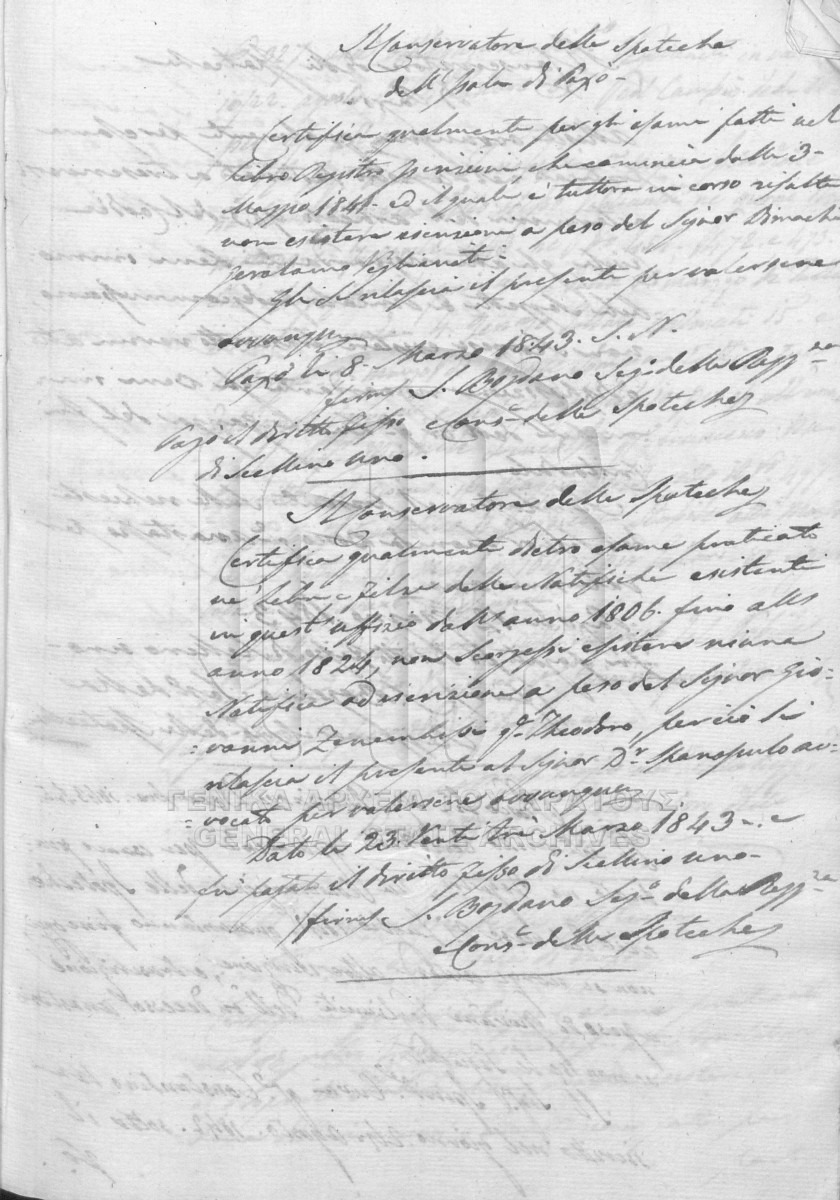 Il Conservatore delle Ipoteche
dell'Isola di Paxò.
Certifica qualmente per gli esami fatti nel
Libro Registro Iscrizioni, che comincia dalli 3
Maggio 1841 ed il quale è tuttora in corso risulta
non esistere iscrizioni a peso del Signor Dimachi
Gerolamo
Gli si rilascia il presente per valersene
ovunque
Paxò li 8. Marzo 1843. S. N.
firm S. Bogdano Segº della Regg.za
Pagò il diritto fisso Consº delle Ipoteche
di Scellino uno.
Il Conservatore delle Ipoteche
Certifica qualmente dietro esame praticato
ne' Libri e filze delle Notifiche esistenti
in quest'uffizio dall'anno 1806. fino allo
anno 1824, non scorgersi esistere niuna
Notifica od iscrizione a peso del Signor Gio=
=vanni qm Theodoro, perciò si
rilascia il presente al Signor Dr. Spanopulo av=
=vocato per valersene ovunque
ΓΕΝΙΚΑ ΑΡΧΕΙΑ ΤΟΥ ΚΡΑΤΟΥΣ
GENERAL STATE ARCHIVES
Dato li 23. Venti tre Marzo 1843 e
fu pagato il diritto fisso di Scellino uno.
firm S. Bogdano Segº della Regg.za
Consº delle Ipoteche